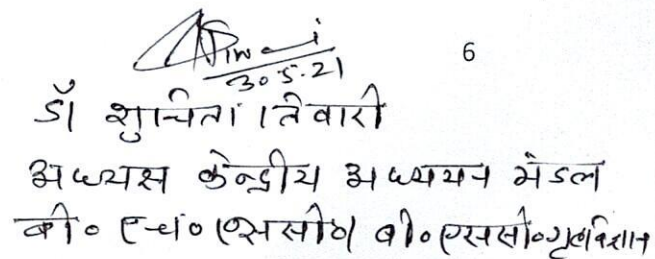 6
30.5.21
डॉ शुचिता तिवारी
अध्यक्ष केन्द्रीय अध्ययन मंडल
बी० एच० एससी०/ बी०एससी०गृहविज्ञान